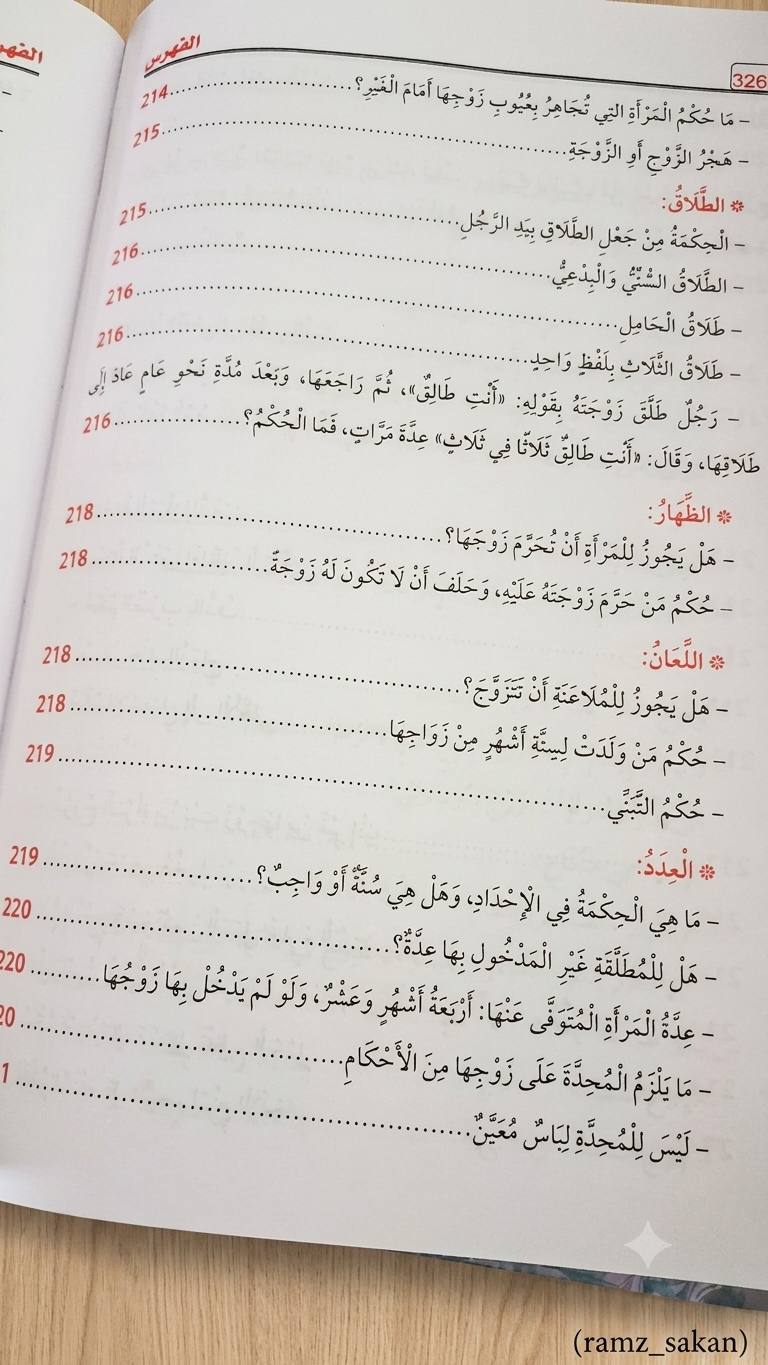 الفهرس
326
– مَا حُكْمُ الْمَرْأَةِ التِي تُجَاهِرُ بِعُيُوبِ زَوْجِهَا أَمَامَ الْغَيْرِ؟ 214
– هَجْرُ الزَّوْجِ أَوِ الزَّوْجَةِ 215
* الطَّلَاقُ:
– الْحِكْمَةُ مِنْ جَعْلِ الطَّلَاقِ بِيَدِ الرَّجُلِ 215
– الطَّلَاقُ السُّنِّيُّ وَالْبِدْعِيُّ 216
– طَلَاقُ الْحَامِلِ 216
– طَلَاقُ الثَّلَاثِ بِلَفْظٍ وَاحِدٍ 216
– رَجُلٌ طَلَّقَ زَوْجَتَهُ بِقَوْلِهِ: «أَنْتِ طَالِقٌ»، ثُمَّ رَاجَعَهَا، وَبَعْدَ مُدَّةِ نَحْوِ عَامٍ عَادَ إِلَى
طَلَاقِهَا، وَقَالَ: «أَنْتِ طَالِقٌ ثَلَاثًا فِي ثَلَاثٍ» عِدَّةَ مَرَّاتٍ، فَمَا الْحُكْمُ؟ 216
* الظِّهَارُ:
– هَلْ يَجُوزُ لِلْمَرْأَةِ أَنْ تُحَرِّمَ زَوْجَهَا؟ 218
– حُكْمُ مَنْ حَرَّمَ زَوْجَتَهُ عَلَيْهِ، وَحَلَفَ أَنْ لَا تَكُونَ لَهُ زَوْجَةً 218
* اللِّعَانُ:
– هَلْ يَجُوزُ لِلْمُلَاعَنَةِ أَنْ تَتَزَوَّجَ؟ 218
– حُكْمُ مَنْ وَلَدَتْ لِسِتَّةِ أَشْهُرٍ مِنْ زَوَاجِهَا 218
– حُكْمُ التَّبَنِّي 219
* الْعِدَدُ:
– مَا هِيَ الْحِكْمَةُ فِي الْإِحْدَادِ، وَهَلْ هِيَ سُنَّةٌ أَوْ وَاجِبٌ؟ 219
– هَلْ لِلْمُطَلَّقَةِ غَيْرِ الْمَدْخُولِ بِهَا عِدَّةٌ؟ 220
– عِدَّةُ الْمَرْأَةِ الْمُتَوَفَّى عَنْهَا: أَرْبَعَةُ أَشْهُرٍ وَعَشْرٌ، وَلَوْ لَمْ يَدْخُلْ بِهَا زَوْجُهَا 220
– مَا يَلْزَمُ الْمُحِدَّةَ عَلَى زَوْجِهَا مِنَ الْأَحْكَامِ 20
– لَيْسَ لِلْمُحِدَّةِ لِبَاسٌ مُعَيَّنٌ 1
(ramz_sakan)